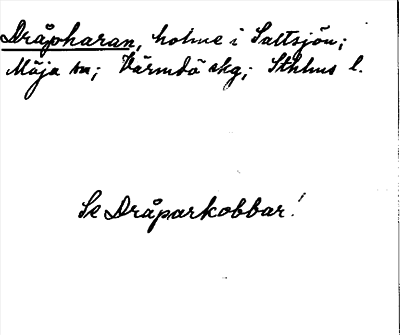 Dråpharan, holme i Saltsjön;
Möja sn; Värmdö skg; Sthlms l.
Se Dråparkobbar!